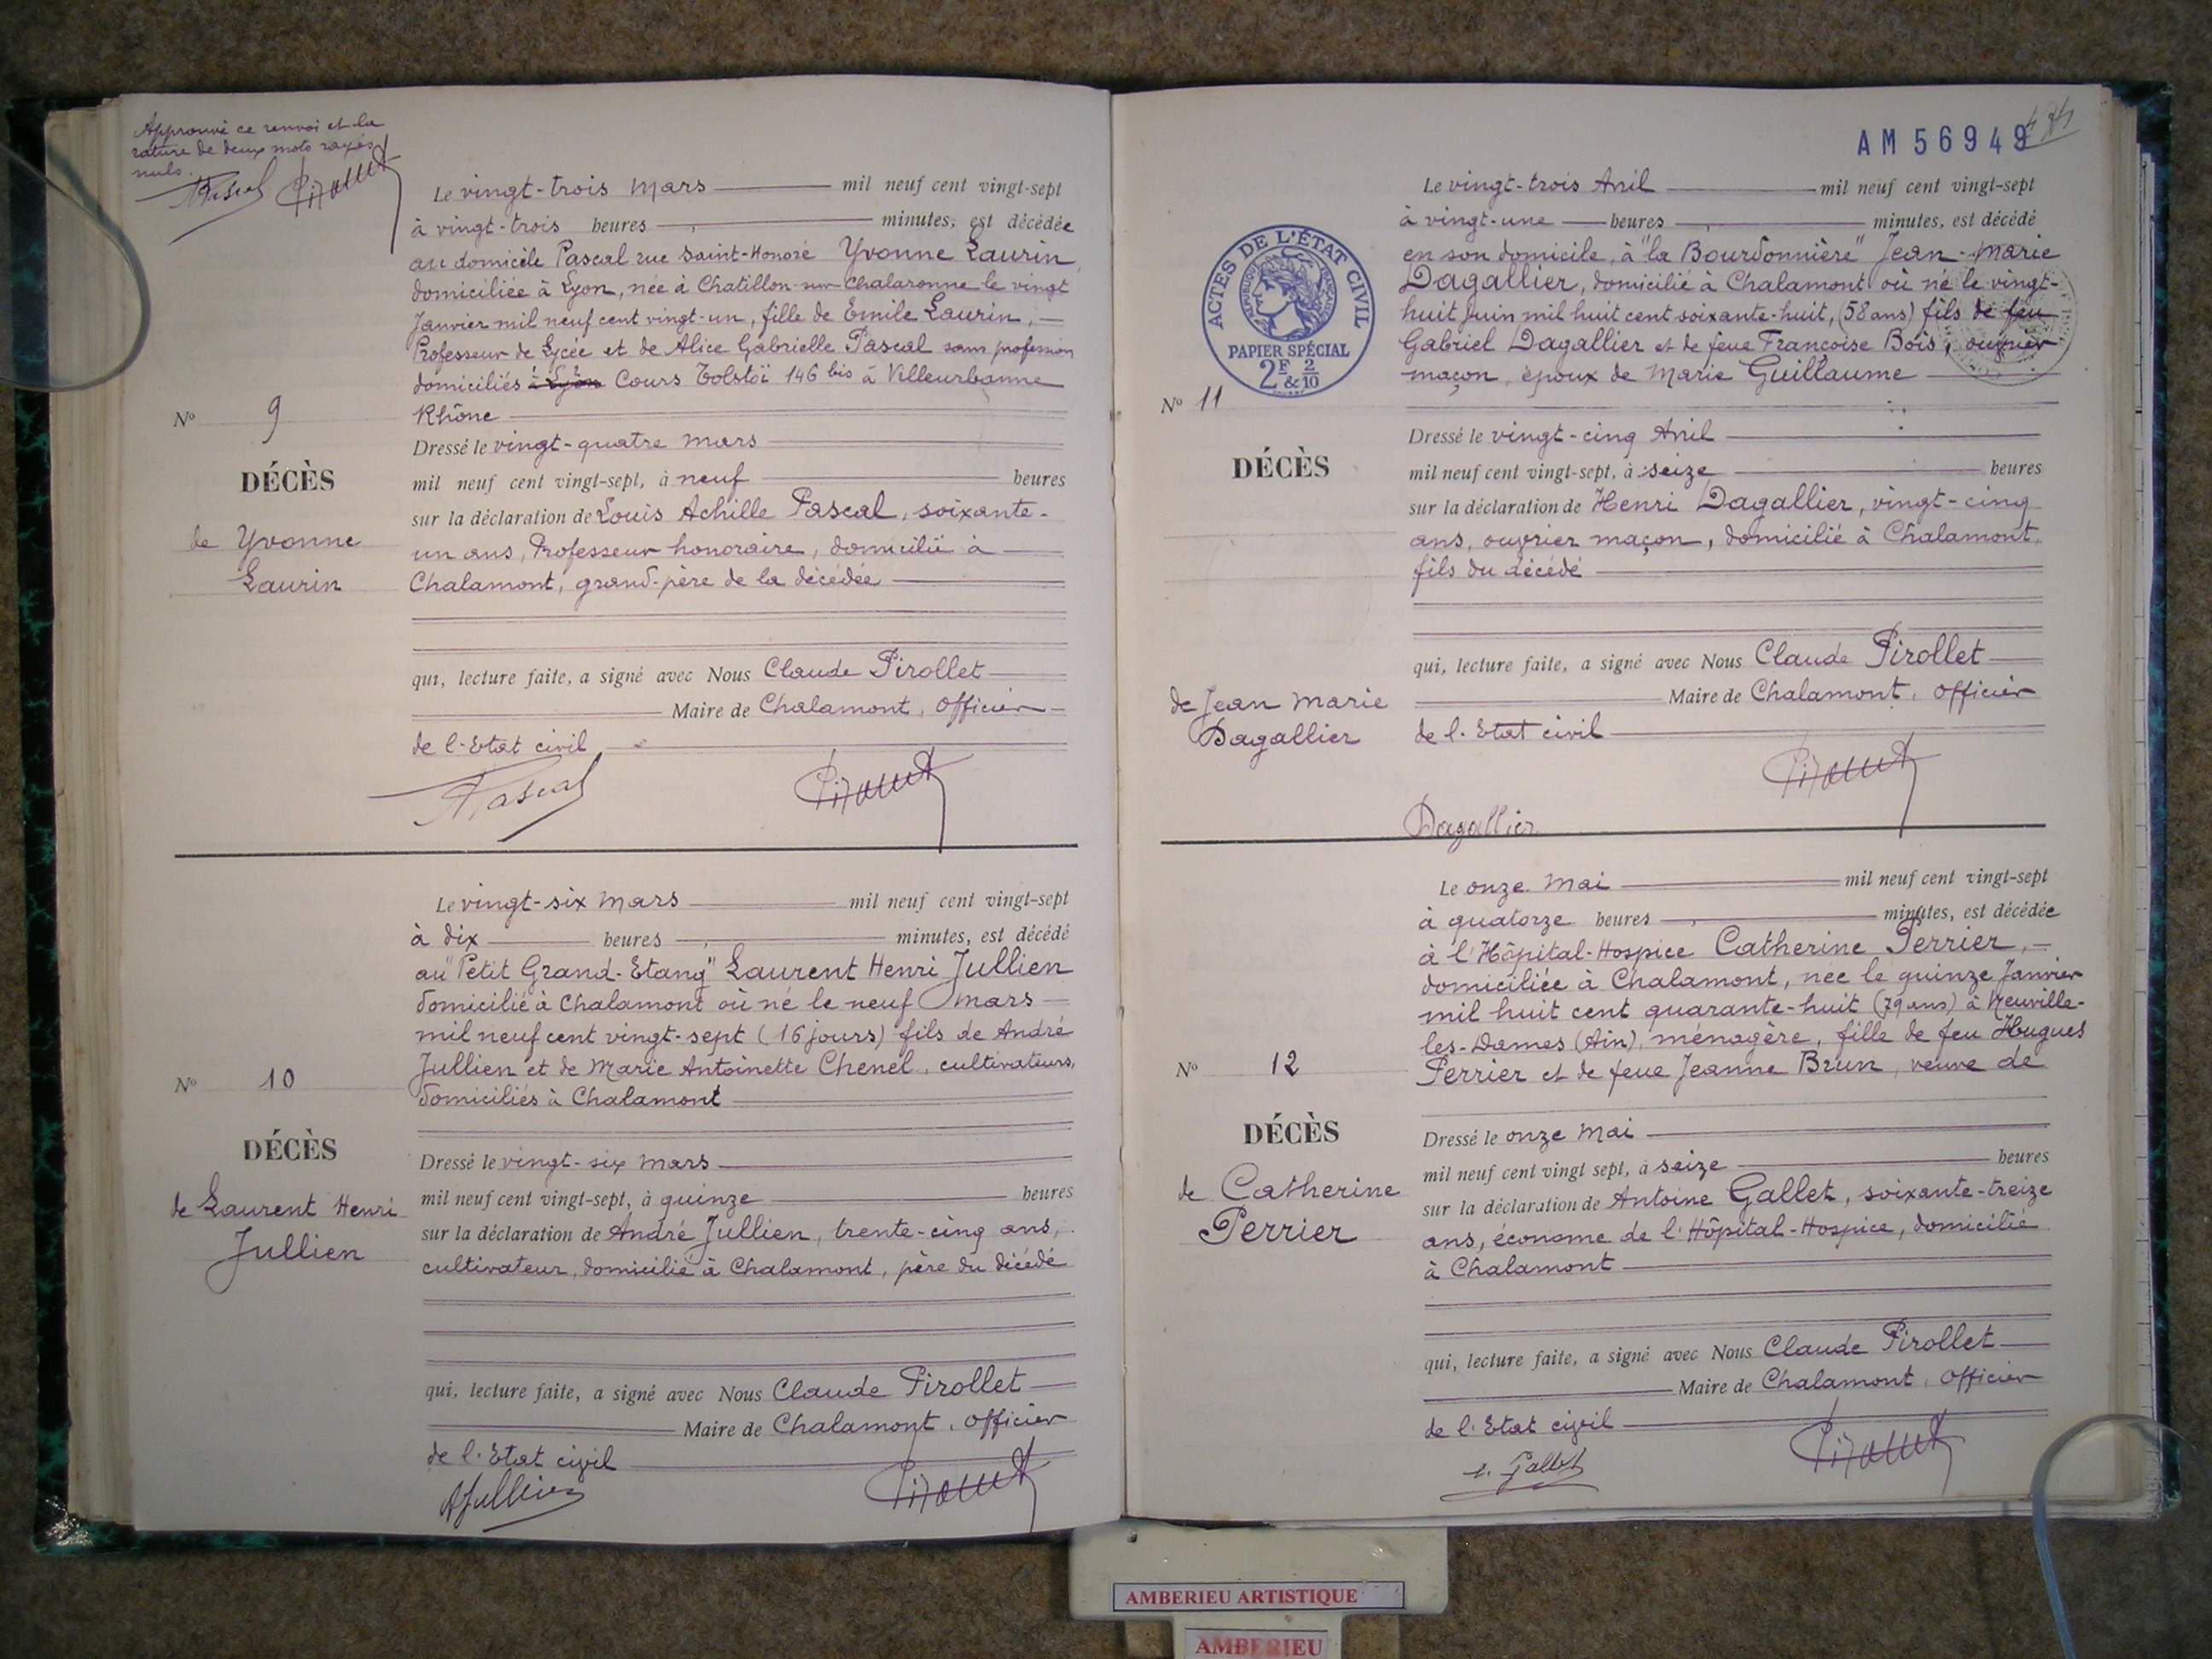 Approuvé ce renvoi et la
rature de deux mots rayés
nuls.
Pascal Pirollet
Le vingt-trois Mars mil neuf cent vingt-sept
à vingt-trois heures minutes, est décédée
au domicile Pascal rue Saint-Honoré Yvonne Laurin
domiciliée à Lyon, née à Chatillon-sur-Chalaronne le vingt
Janvier mil neuf cent vingt-un, fille de Emile Laurin,
Professeur de Lycée et de Alice Gabrielle Pascal sans profession
domiciliés à Lyon Cours Tolstoï 146 bis à Villeurbanne
Rhône
N° 9
DÉCÈS
de Yvonne
Laurin
Dressé le vingt-quatre Mars
mil neuf cent vingt-sept, à neuf heures
sur la déclaration de Louis Achille Pascal, soixante-
un ans, Professeur honoraire, domicilié à
Chalamont, grand-père de la décédée
qui, lecture faite, a signé avec Nous Claude Pirollet
Maire de Chalamont, Officier
de l'Etat civil
Pascal Pirollet
Le vingt-six Mars mil neuf cent vingt-sept
à dix heures minutes, est décédé
au "Petit Grand-Etang" Laurent Henri Jullien
domicilié à Chalamont où né le neuf Mars
mil neuf cent vingt-sept (16 jours) fils de André
Jullien et de Marie Antoinette Chenel, cultivateurs,
domiciliés à Chalamont
N° 10
DÉCÈS
de Laurent Henri
Jullien
Dressé le vingt-six Mars
mil neuf cent vingt-sept, à quinze heures
sur la déclaration de André Jullien, trente-cinq ans,
cultivateur, domicilié à Chalamont, père du décédé
qui, lecture faite, a signé avec Nous Claude Pirollet
Maire de Chalamont, Officier
de l'Etat civil
AJullien Pirollet
AM 56949
ACTES DE L'ÉTAT CIVIL
RÉPUBLIQUE FRANÇAISE
PAPIER SPÉCIAL
2F & 2/10
Le vingt-trois Avril mil neuf cent vingt-sept
à vingt-une heures minutes, est décédé
en son domicile, à "la Bourdonnière" Jean-Marie
Dagallier, domicilié à Chalamont où né le vingt-
huit Juin mil huit cent soixante-huit, (58 ans) fils de feu
Gabriel Dagallier et de feue Françoise Bois, ouvrier
maçon, époux de Marie Guillaume
N° 11
DÉCÈS
de Jean Marie
Dagallier
Dressé le vingt-cinq Avril
mil neuf cent vingt-sept, à seize heures
sur la déclaration de Henri Dagallier, vingt-cinq
ans, ouvrier maçon, domicilié à Chalamont,
fils du décédé
qui, lecture faite, a signé avec Nous Claude Pirollet
Maire de Chalamont, Officier
de l'Etat civil
Pirollet
Dagallier
Le onze Mai mil neuf cent vingt-sept
à quatorze heures minutes, est décédée
à l'Hôpital-Hospice Catherine Perrier,
domiciliée à Chalamont, née le quinze Janvier
mil huit cent quarante-huit (79 ans) à Neuville-
les-Dames (Ain), ménagère, fille de feu Hugues
Perrier et de feue Jeanne Brun, veuve de
N° 12
DÉCÈS
de Catherine
Perrier
Dressé le onze Mai
mil neuf cent vingt sept, à seize heures
sur la déclaration de Antoine Gallet, soixante-treize
ans, économe de l'Hôpital-Hospice, domicilié
à Chalamont
qui, lecture faite, a signé avec Nous Claude Pirollet
Maire de Chalamont, Officier
de l'Etat civil
Gallet Pirollet
AMBERIEU ARTISTIQUE
AMBERIEU